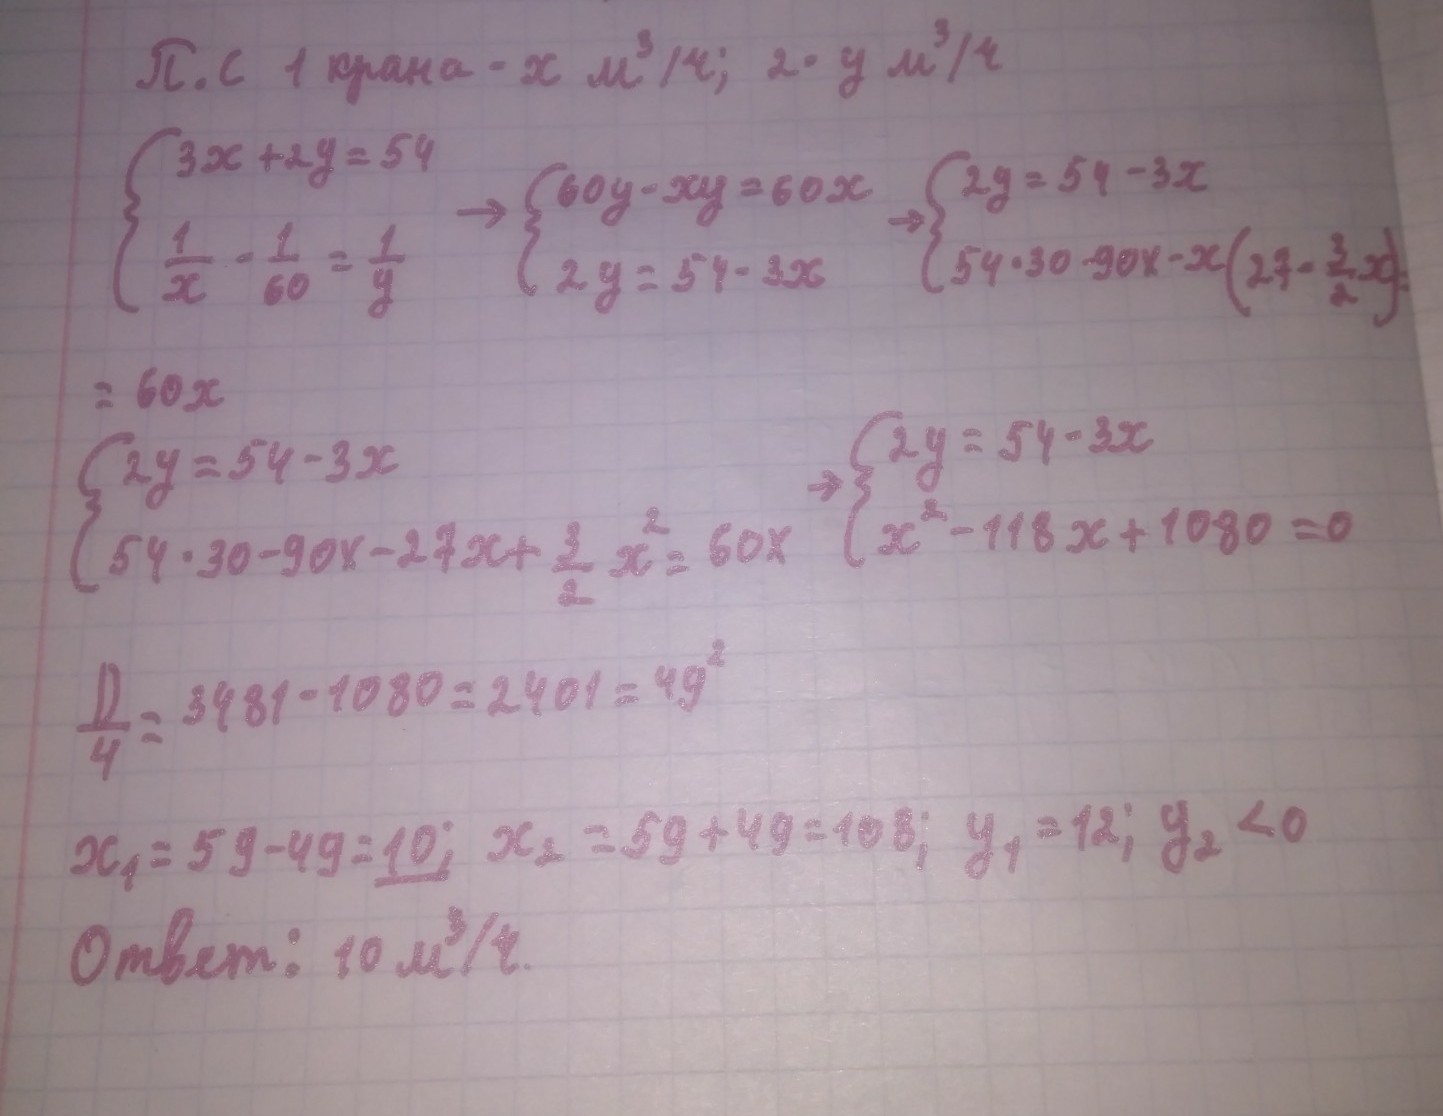 П.С 1 крана - x м³/ч; 2 - y м³/ч
{3x + 2y = 54
{1/x - 1/60 = 1/y → {60y - xy = 60x {2y = 54 - 3x → {2y = 54 - 3x {54 · 30 - 90x - x(27 - 3/2 x) =
= 60x
{2y = 54 - 3x {54 · 30 - 90x - 27x + 3/2 x² = 60x → {2y = 54 - 3x {x² - 118x + 1080 = 0
D/4 = 3481 - 1080 = 2401 = 49²
x₁ = 59 - 49 = 10; x₂ = 59 + 49 = 108; y₁ = 12; y₂ < 0
Ответ: 10 м³/ч.